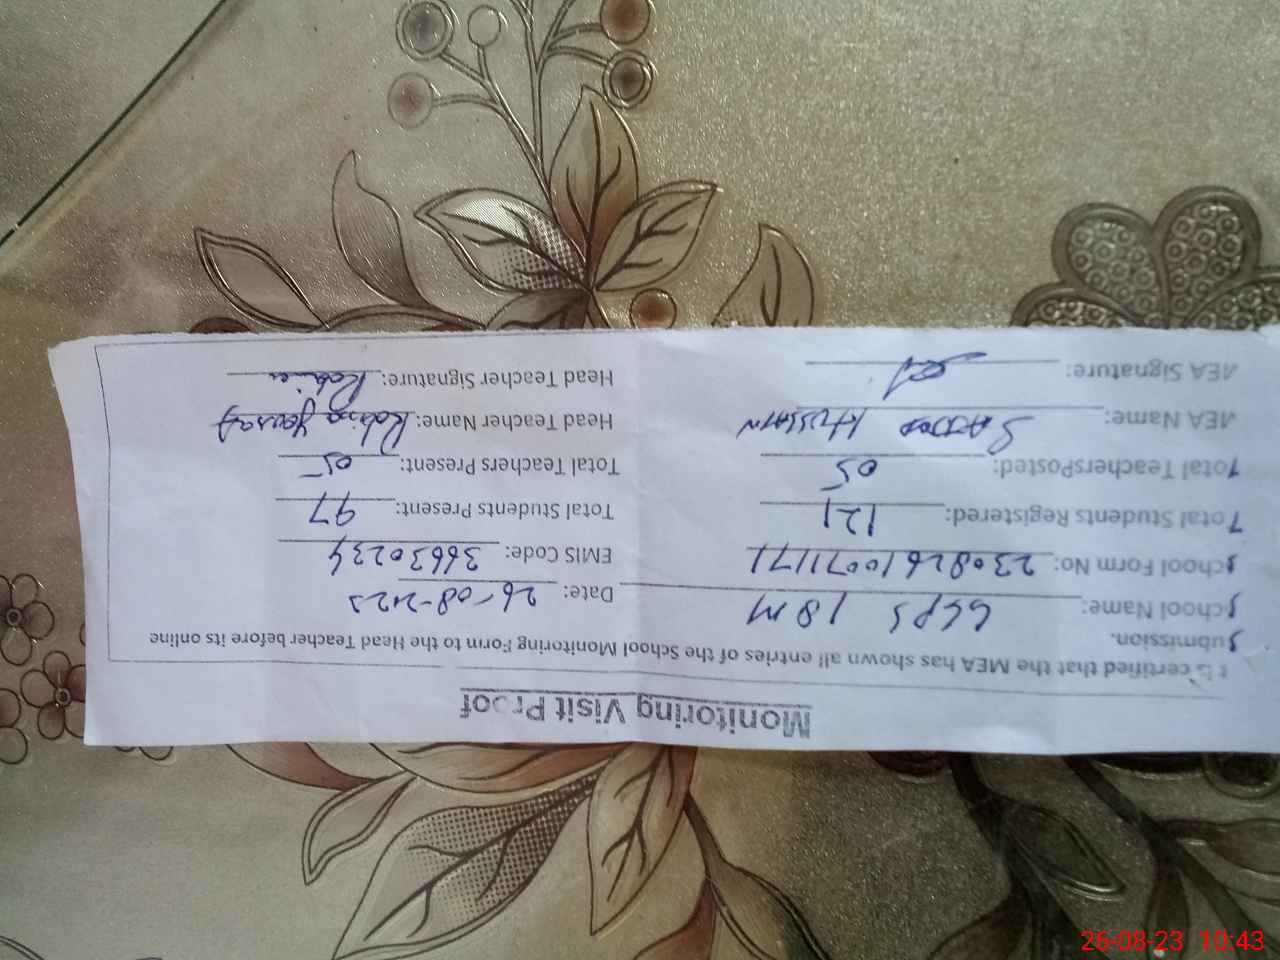 Monitoring Visit Proof
certified that the MEA has shown all entries of the School Monitoring Form to the Head Teacher before its online
submission.
School Name: GGPS 18 M Date: 26-08-2023
School Form No: 230826100711171 EMIS Code: 36630234
Total Students Registered: 121 Total Students Present: 97
Total TeachersPosted: 05 Total Teachers Present: 05
MEA Name: SAJJAD HUSSAIN Head Teacher Name: Robina Yousaf
MEA Signature: Head Teacher Signature: Robina
26-08-23 10:43